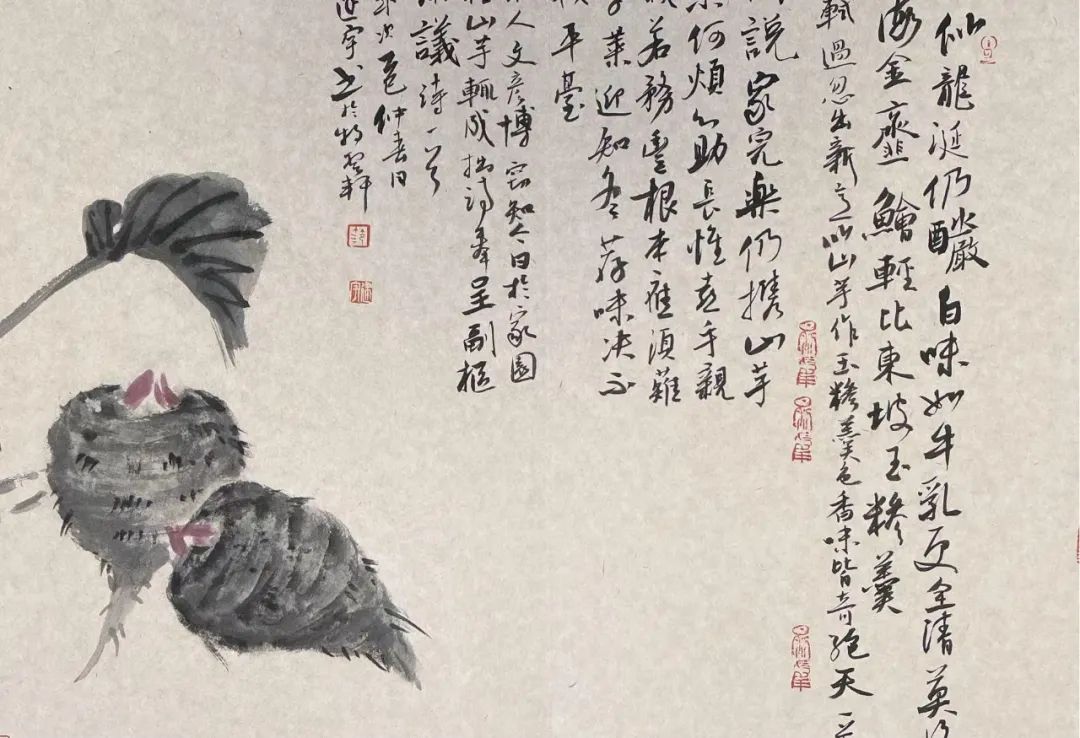 似龍涎仍釅白味如牛乳更全清莫
海金齏鱠輕比東坡玉糝羹
過忽出新意以山芋作玉糝羹色香味皆奇絕天
說家完樂仍攜山芋
何煩人助長惟喜手親
若務豐根本應須薙
菜迎知冬荐味决不
平臺
人文彥博竊知今日於家園
山芋輒成拙詩奉呈副樞
議詩一首
次邑仲春日
宇书於軒